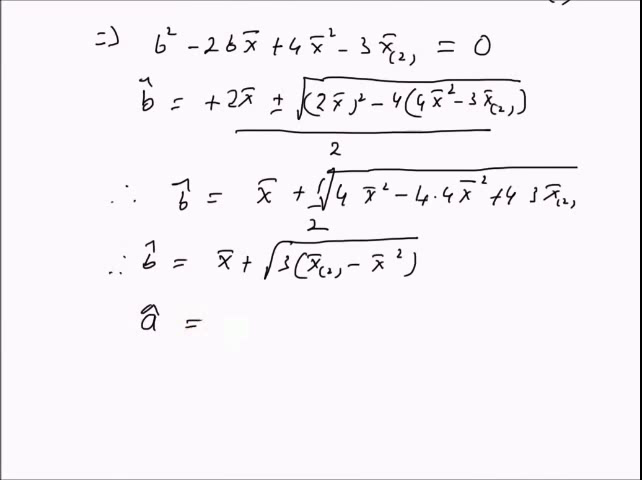 ⇒ b² - 2bx̄ + 4x̄² - 3x̄₍₂₎ = 0
b̂ = +2x̄ ± √((2x̄)² - 4(4x̄² - 3x̄₍₂₎)) / 2
∴ b̂ = x̄ + 1/2 √(4x̄² - 4·4x̄² + 4 3x̄₍₂₎)
∴ b̂ = x̄ + √(3(x̄₍₂₎ - x̄²))
â =